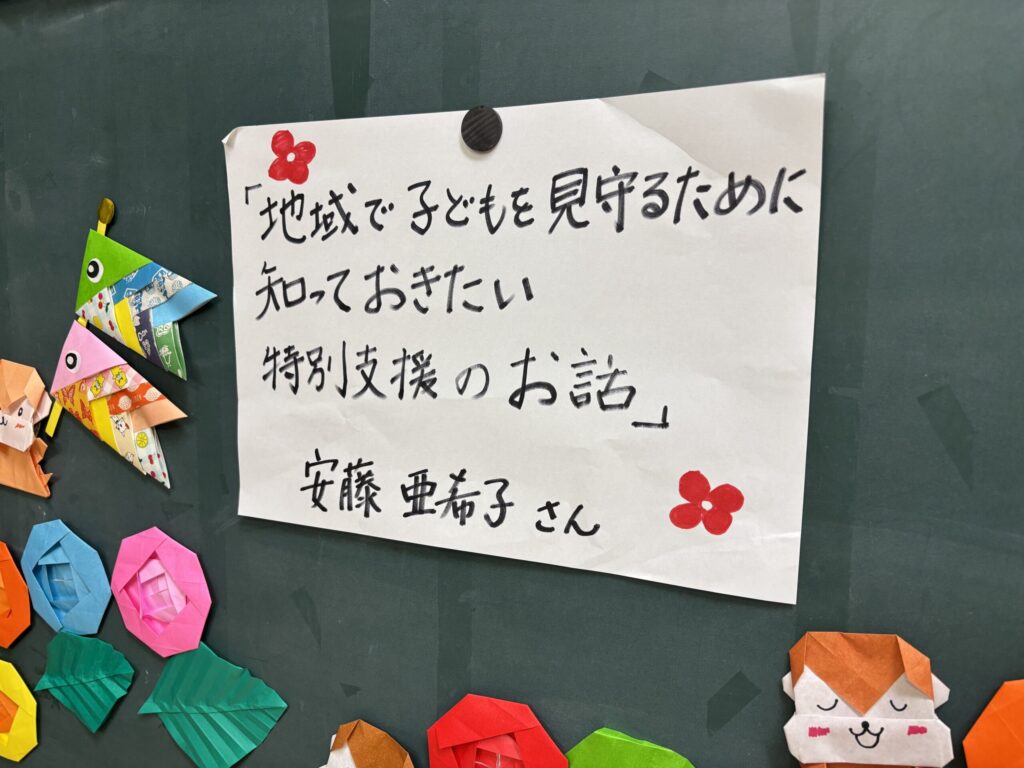 「地域で子どもを見守るために
知っておきたい
特別支援のお話」
安藤 亜希子 さん